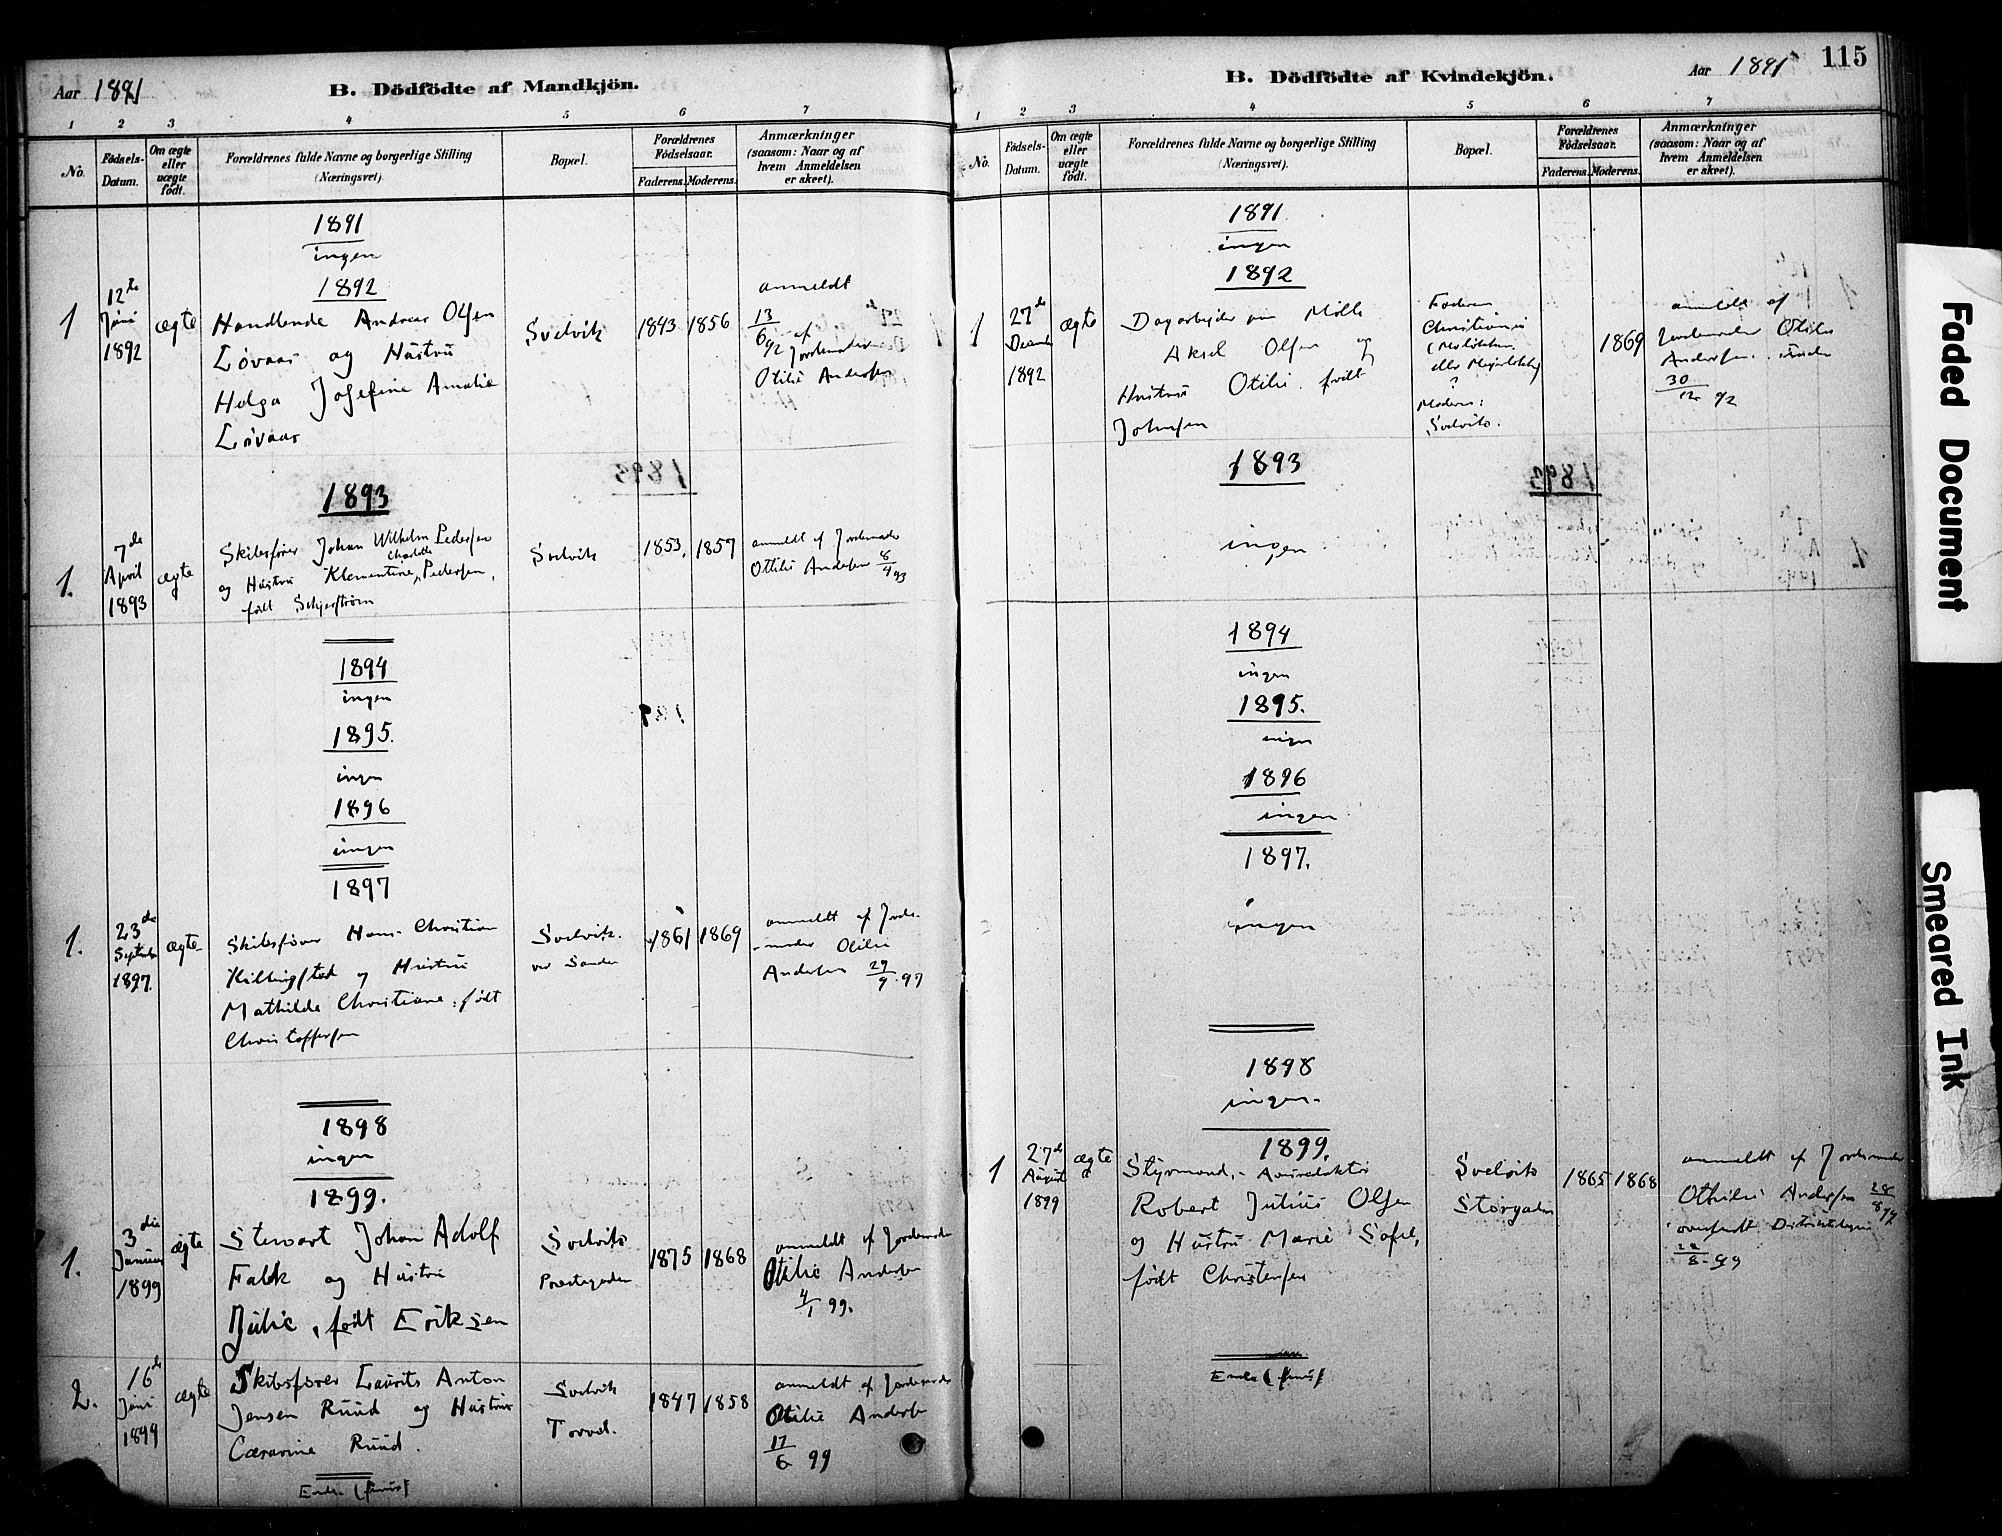 Aar 1891
B. Dödfödte af Mandkjön.
1 2 3 4 5 6 7
No.
Födsels-Datum.
Om ægte eller uægte födt.
Forældrenes fulde Navne og borgerlige Stilling
(Næringsvei).
Bopæl.
Forældrenes Födselsaar.
Faderens. Moderens.
Anmærkninger
(saasom: Naar og af
hvem Anmeldelsen
er skeet).
1891
ingen
1892
1 12te Juni 1892 ægte
Handlende Andreas Olsen
Løvaas og Hustru
Helga Josefine Amalie
Løvaas
Svelvik 1843 1856
anmeldt
13/6 92 af
Jordemoder
Otilie Andersen
1893
1. 7de April 1893 ægte
Skibsfører Johan Wilhelm Pedersen
og Hustru Klementine Charlotte Pedersen,
født
Svelvik 1853. 1857
anmeldt af Jordemoder
Ottilie Andersen 8/4 93
1894
ingen
1895.
ingen
1896
ingen
1897
1. 23de September 1897. ægte
Skibsfører Hans Christian
Killingstad og Hustru
Mathilde Christiane født
Christoffersen
Svelvik.
ved Sanden
1861 1869
anmeldt af Jorde-
moder Otilie
Andersen 29/9 97
1898
ingen
1899.
1. 3die Januar 1899 ægte
Stewart Johan Adolf
Falck og Hustru
Julie, født Eriksen
Svelvik
Præstegaden
1875 1868
anmeldt af Jordemoder
Otilie Andersen
4/1 99.
2. 16de Juni 1899 ægte
Skibsfører Laurits Anton
Jensen Ruud og Hustru
Ruud.
Svelvik
Torvet.
1847 1858
anmeldt af Jordemoder
Otilie Andersen
17/6 99
Ende (finis)
115
Aar 1891
B. Dödfödte af Kvindekjön.
1 2 3 4 5 6 7
No.
Födsels-Datum.
Om ægte eller uægte födt.
Forældrenes fulde Navne og borgerlige Stilling
(Næringsvei).
Bopæl.
Forældrenes Födselsaar.
Faderens. Moderens.
Anmærkninger
(saasom: Naar og af
hvem Anmeldelsen
er skeet).
1891
ingen
1892
1 27de 1892 ægte
Dagarbejder Mølle
Aksel Olsen og
Hustru Otilie født
Johnsen
Faderen
Christiania
eller
?
Moderen:
Svelvik.
1869
anmeldt af
Jordemoder Otilie
Andersen
30/12 92
1893
ingen
1894
ingen
1895.
ingen
1896
ingen
1897.
ingen
1898
ingen.
1899.
1 27de August 1899 ægte
Styrmand,
Robert Julius Olsen
og Hustru Marie Sofie,
født Christensen
Svelvik
Storgaden
1865 1868
anmeldt af Jordemoder
Othilie Andersen 28/8 99
Ende (finis)
Faded Document
Smeared Ink